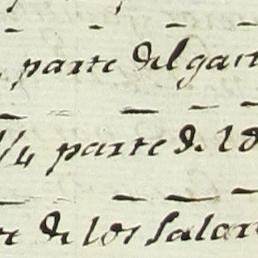 parte del gast
1/4 parte de lo
de los Salar